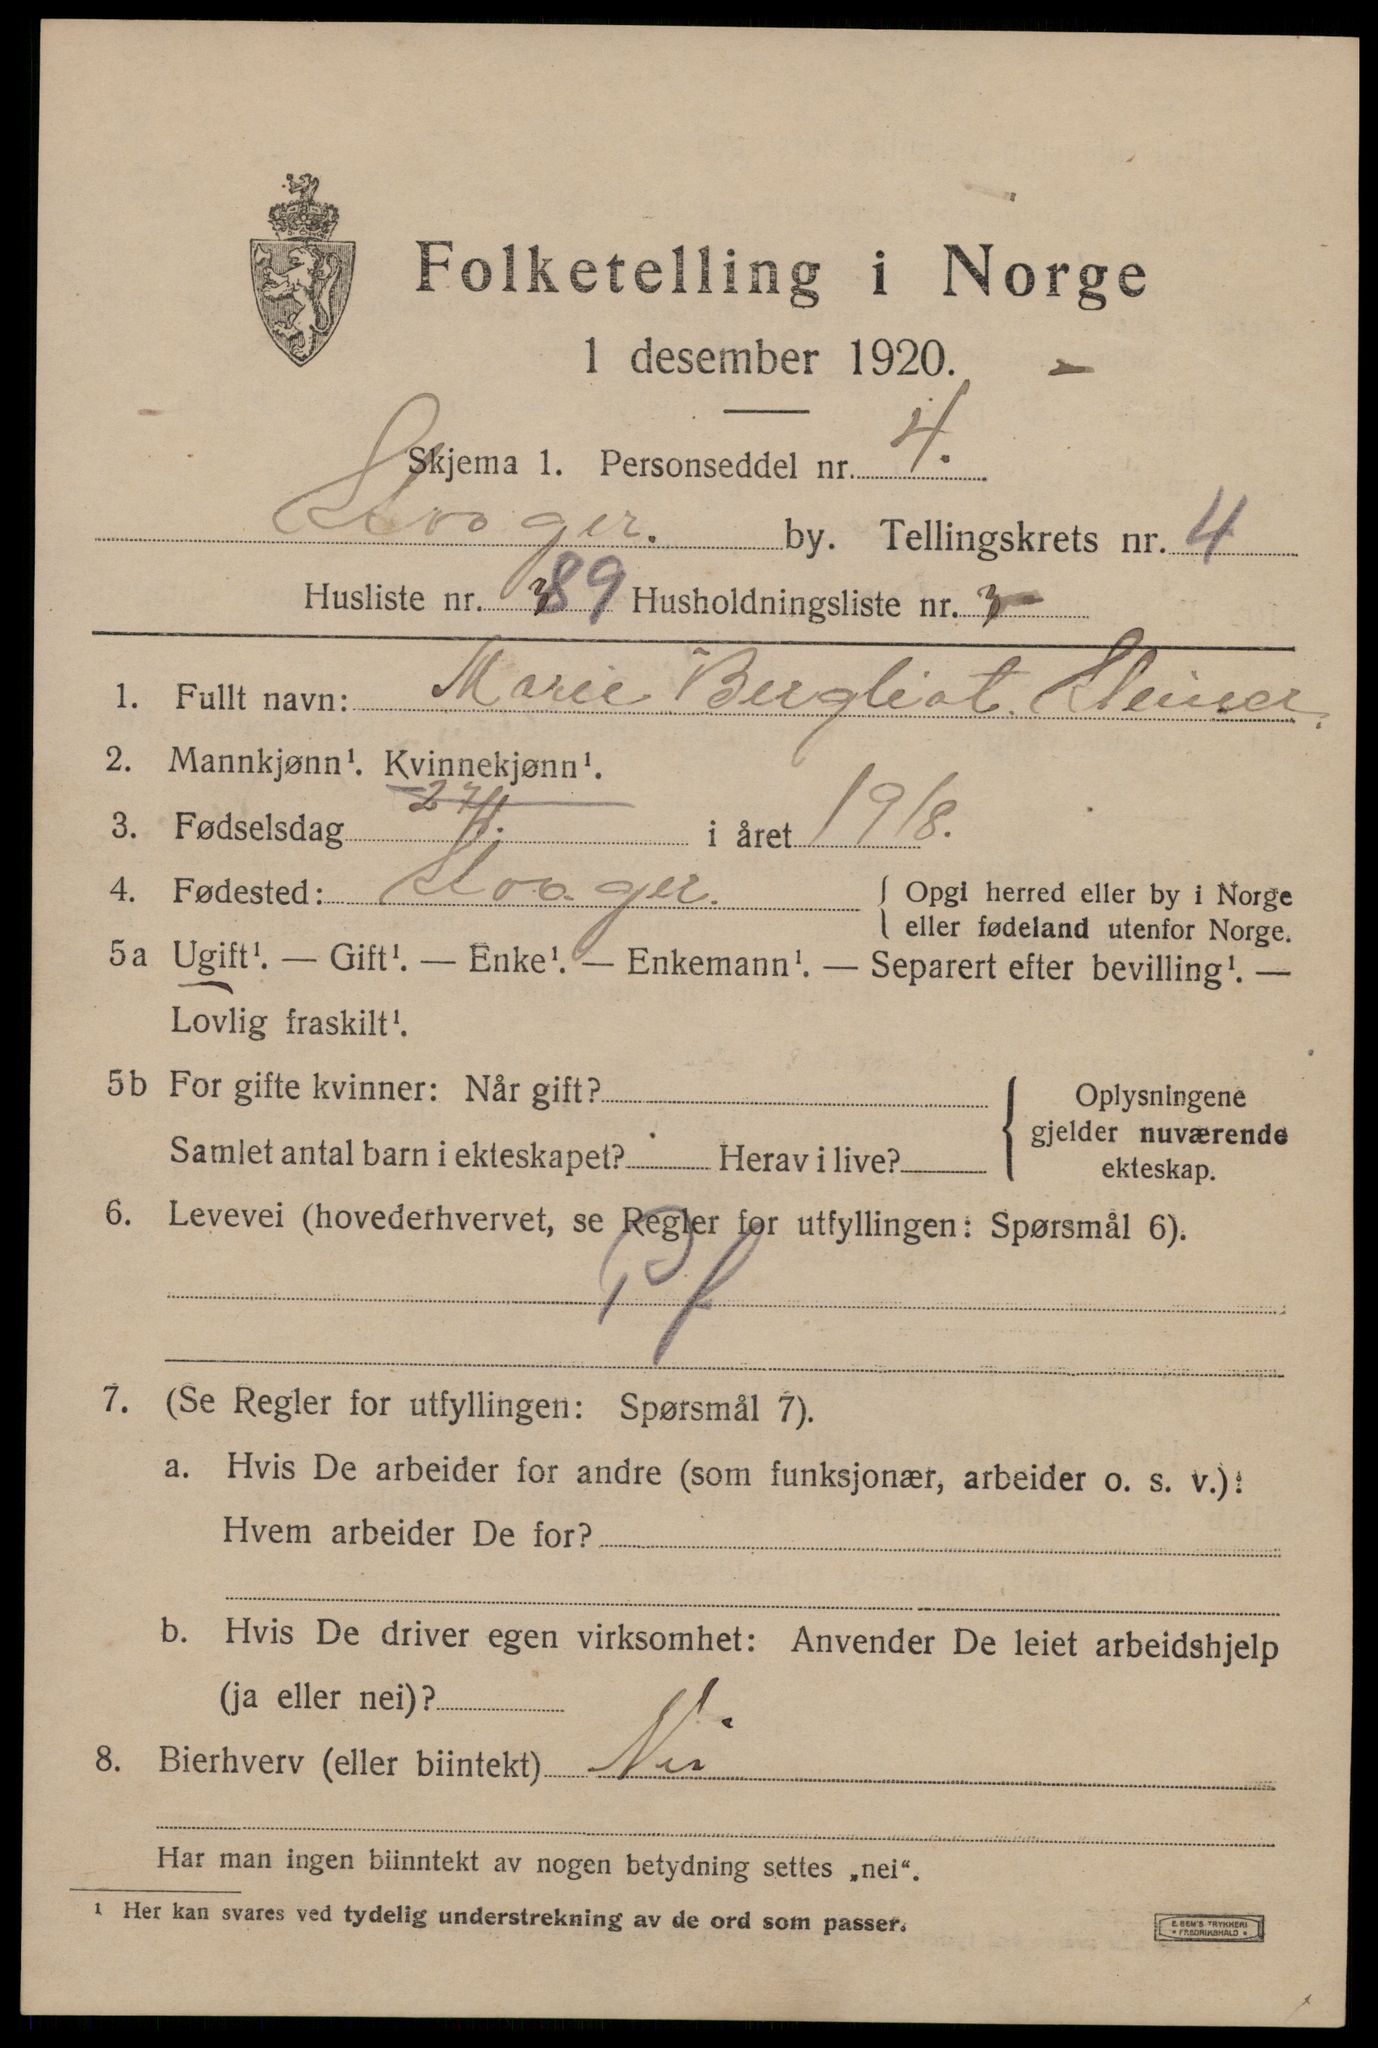 Folketelling i Norge
1 desember 1920.
Skjema 1. Personseddel nr. 4.
by. Tellingskrets nr. 4
Husliste nr. 89 Husholdningsliste nr. 3
1. Fullt navn: Marie Bergliot Steiner.
2. Mannkjønn¹. Kvinnekjønn¹.
3. Fødselsdag i året 1918.
4. Fødested: { Opgi herred eller by i Norge
eller fødeland utenfor Norge.
5a Ugift¹. — Gift¹. — Enke¹. — Enkemann¹. — Separert efter bevilling¹. —
Lovlig fraskilt¹.
5b For gifte kvinner: Når gift? Oplysningene
gjelder nuværende
Samlet antal barn i ekteskapet? Herav i live? ekteskap.
6. Levevei (hovederhvervet, se Regler for utfyllingen: Spørsmål 6).
Pf
7. (Se Regler for utfyllingen: Spørsmål 7).
a. Hvis De arbeider for andre (som funksjonær, arbeider o. s. v.):
Hvem arbeider De for?
b. Hvis De driver egen virksomhet: Anvender De leiet arbeidshjelp
(ja eller nei)?
8. Bierhverv (eller biintekt) Nei
Har man ingen biinntekt av nogen betydning settes „nei“.
¹ Her kan svares ved tydelig understrekning av de ord som passer.
E. SEM'S TRYKKERI
* FREDRIKSHALD *